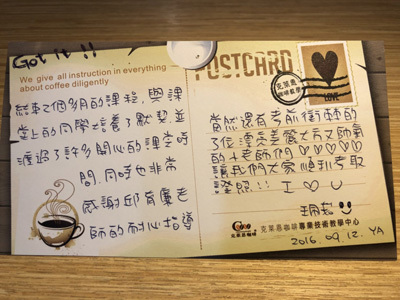 Got it !!
We give all instruction in everything
about coffee diligently
結束2個多月的課程,與課
堂上的同學培養了默契並
渡過了許多開心的課堂時
間,同時也非常
感謝邱育慶老
師的耐心指導
POSTCARD
克萊恩
咖啡農業
LOVE
當然還有考前衝刺的
了位漂亮美麗大方又帥氣
的小老師們♡♡♡♡♡
讓我們大家順利考取
證照!! I ♡ U
克萊恩咖啡
克萊恩咖啡專業技術教學中心
2016. 09. 12. YA